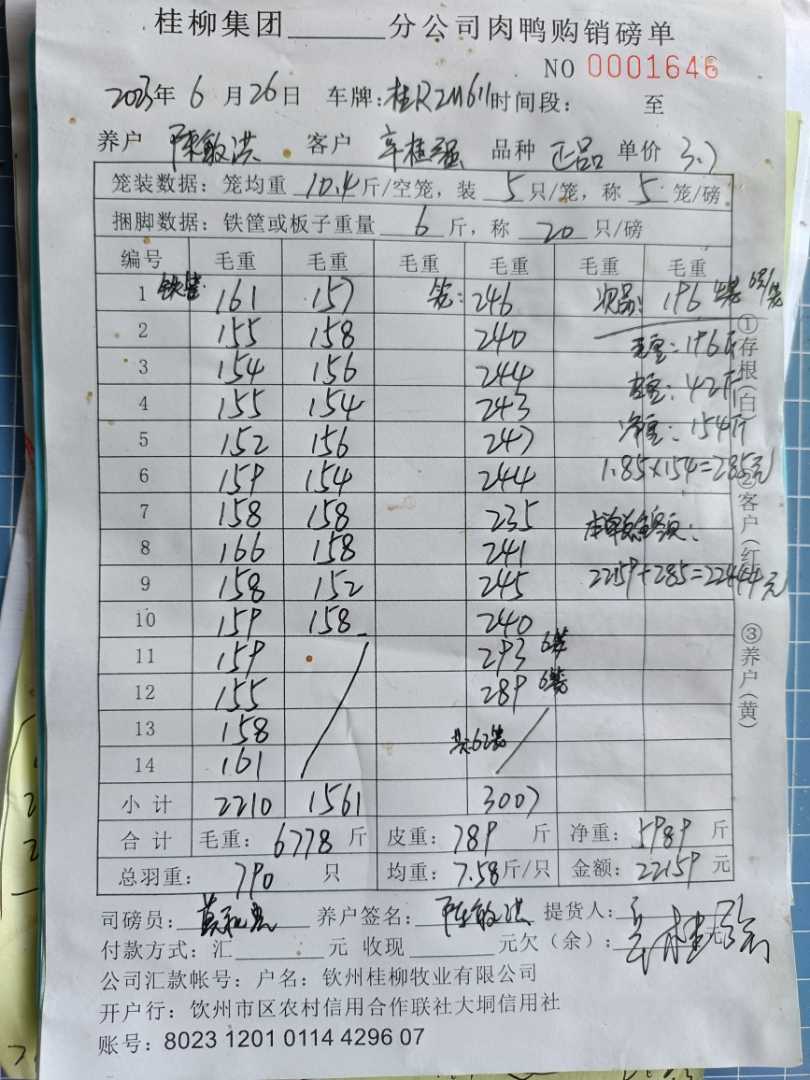 桂柳集团______分公司肉鸭购销磅单
NO 0001646
2023年 6 月 26 日 车牌:桂R2M611时间段: 至
养户 陈敏洪 客户 辛桂强 品种 正品 单价 3.7
笼装数据:笼均重 10.4 斤/空笼,装 5 只/笼,称 5 笼/磅
捆脚数据:铁筐或板子重量 6 斤,称 20 只/磅
编号 毛重 毛重 毛重 毛重 毛重 毛重
1 铁筐 161 157 笼: 246 次品: 196 6只/笼
2 155 158 240 毛重: 196斤
3 154 156 244 皮重: 42斤
4 155 154 243 净重: 154斤
5 152 156 247 1.85×154=285元
6 159 154 244
7 158 158 235 本单总金额:
8 166 158 241
9 158 152 245 22159+285=22444元
10 159 158 240
11 159 293 6笼
12 155 289 6笼
13 158 共62笼
14 161
小计 2210 1561 3007
合计 毛重: 6778 斤 皮重: 789 斤 净重: 5989 斤
总羽重: 790 只 均重: 7.58斤/只 金额: 22159 元
司磅员: 养户签名: 陈敏洪 提货人:
付款方式:汇______元 收现______元欠(余):______元
公司汇款帐号:户名:钦州桂柳牧业有限公司
开户行:饮州市区农村信用合作联社大垌信用社
账号:8023 1201 0114 4296 07
①存根(白)
②客户(红)
③养户(黄)